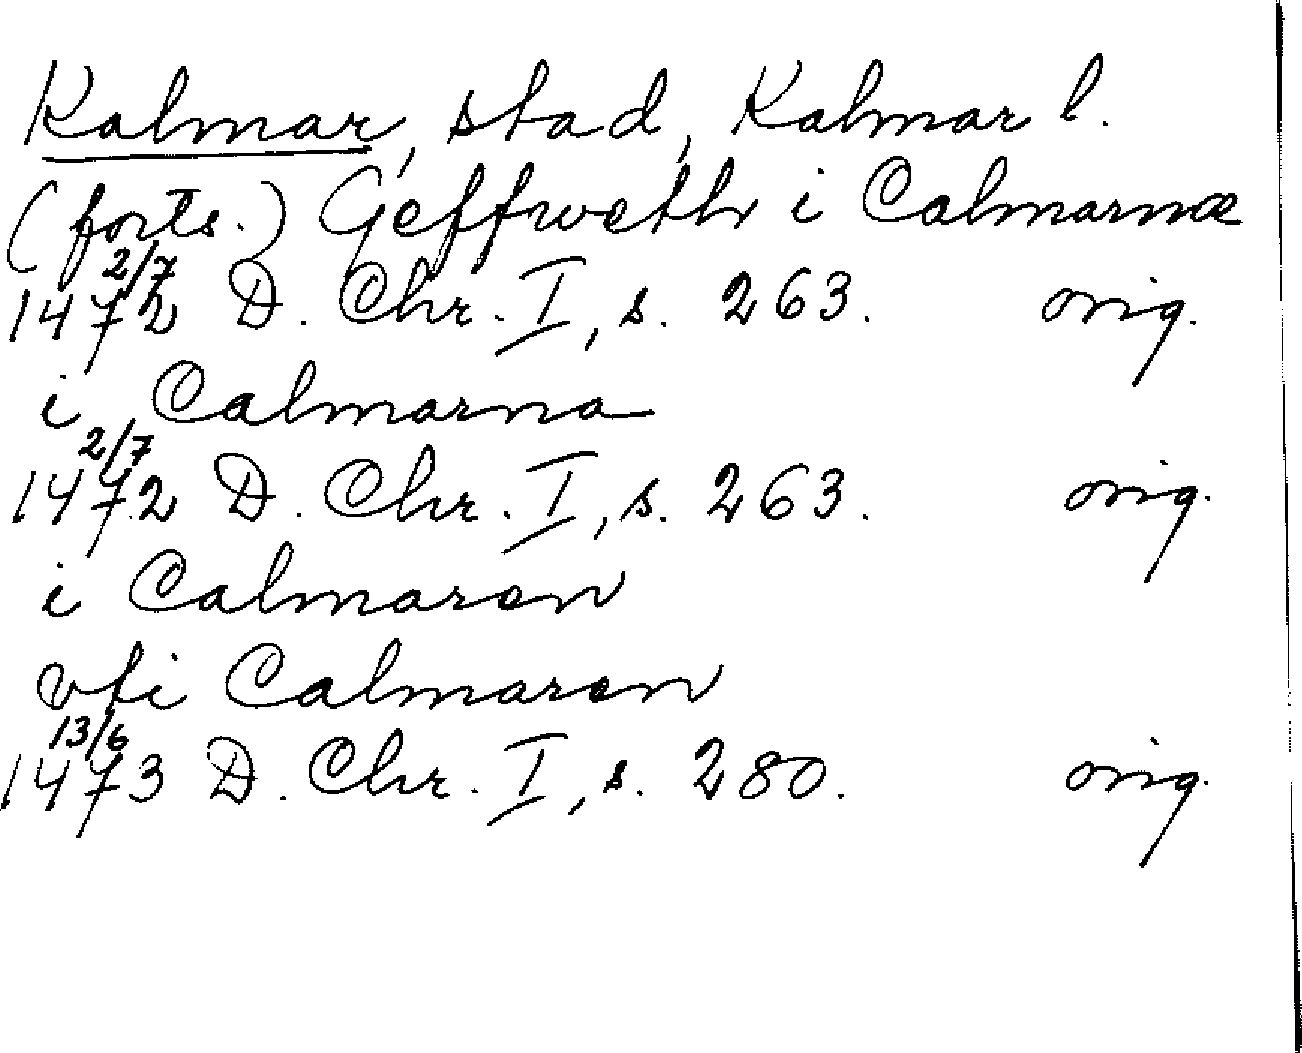 Kalmar, stad, Kalmar l.
(forts.) Geffweth i Calmarnæ
2/7
1472 D. Chr. I, s. 263. orig.
i Calmarna
2/7
1472 D. Chr. I, s. 263. orig.
i Calmaren
vti Calmaren
13/6
1473 D. Chr. I, s. 280. orig.